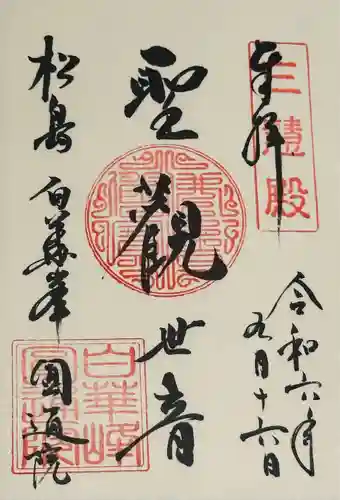 奉拝
三慧殿
令和六年
九月十六日
聖觀世音
松島 白華峯 圓通院
白華峰